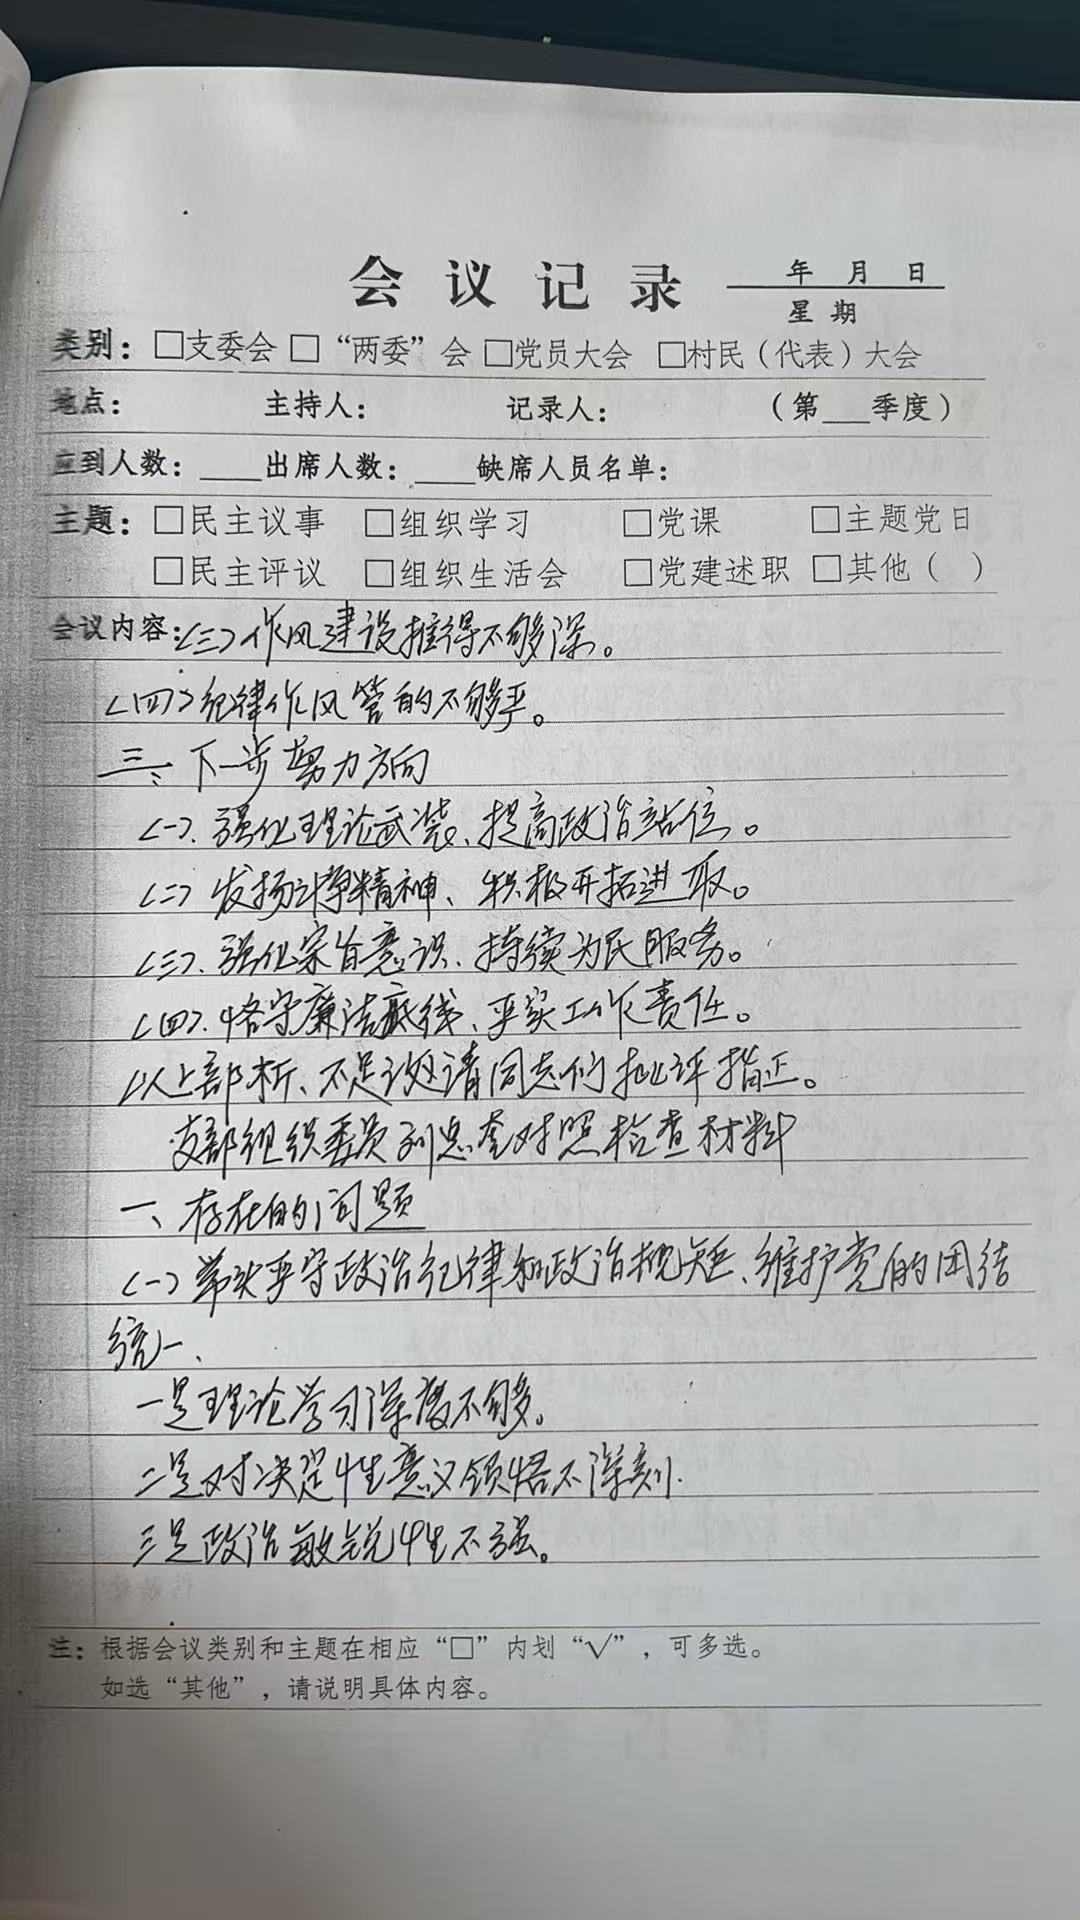 会议记录 年 月 日
星期
类别：□支委会 □“两委”会 □党员大会 □村民（代表）大会
地点： 主持人： 记录人： （第___季度）
应到人数：____出席人数：____缺席人员名单：
主题：□民主议事 □组织学习 □党课 □主题党日
□民主评议 □组织生活会 □党建述职 □其他（ ）
会议内容：<三>作风建设推得不够深。
<四>纪律作风管的不够严。
三、下一步努力方向
<一>、强化理论武装、提高政治站位。
<二>发扬斗争精神、积极开拓进取。
<三>、强化宗旨意识、持续为民服务。
<四>、恪守廉洁底线、平实工作责任。
以上部析、不足说处请同志们批评指正。
支部组织委员刘忠奎对照检查材料
一、存在的问题
<一>带头严守政治纪律和政治规矩、维护党的团结
统一、
一是理论学习深度不够。
二是对决定性意义领悟不深刻.
三是政治敏锐性不强。
注：根据会议类别和主题在相应“□”内划“√”，可多选。
如选“其他”，请说明具体内容。